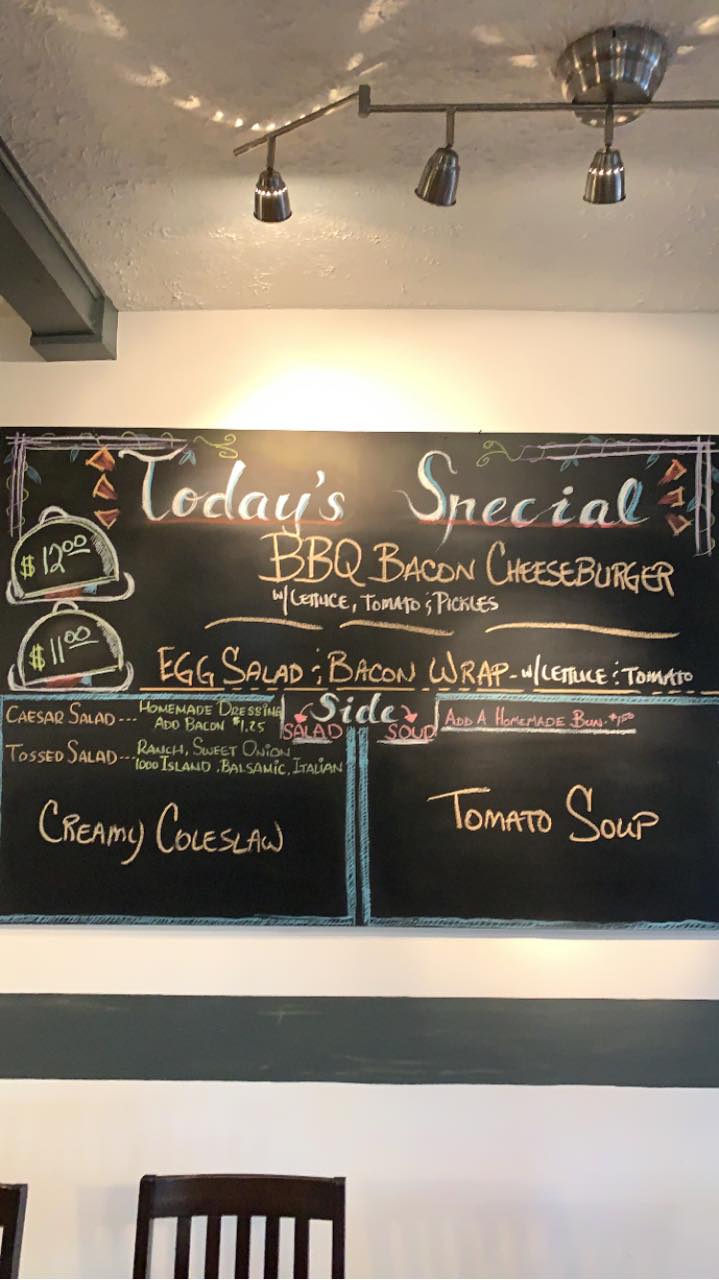 Today's Special
$12.00
BBQ BACON CHEESEBURGER
W/LETTUCE, TOMATO & PICKLES
$11.00
EGG SALAD & BACON WRAP - W/LETTUCE & TOMATO
Side
SALAD SOUP
CAESAR SALAD --- HOMEMADE DRESSING
ADD BACON $1.25
TOSSED SALAD --- RANCH, SWEET ONION
1000 ISLAND, BALSAMIC, ITALIAN
CREAMY COLESLAW
ADD A HOMEMADE BUN - $1.50
TOMATO SOUP